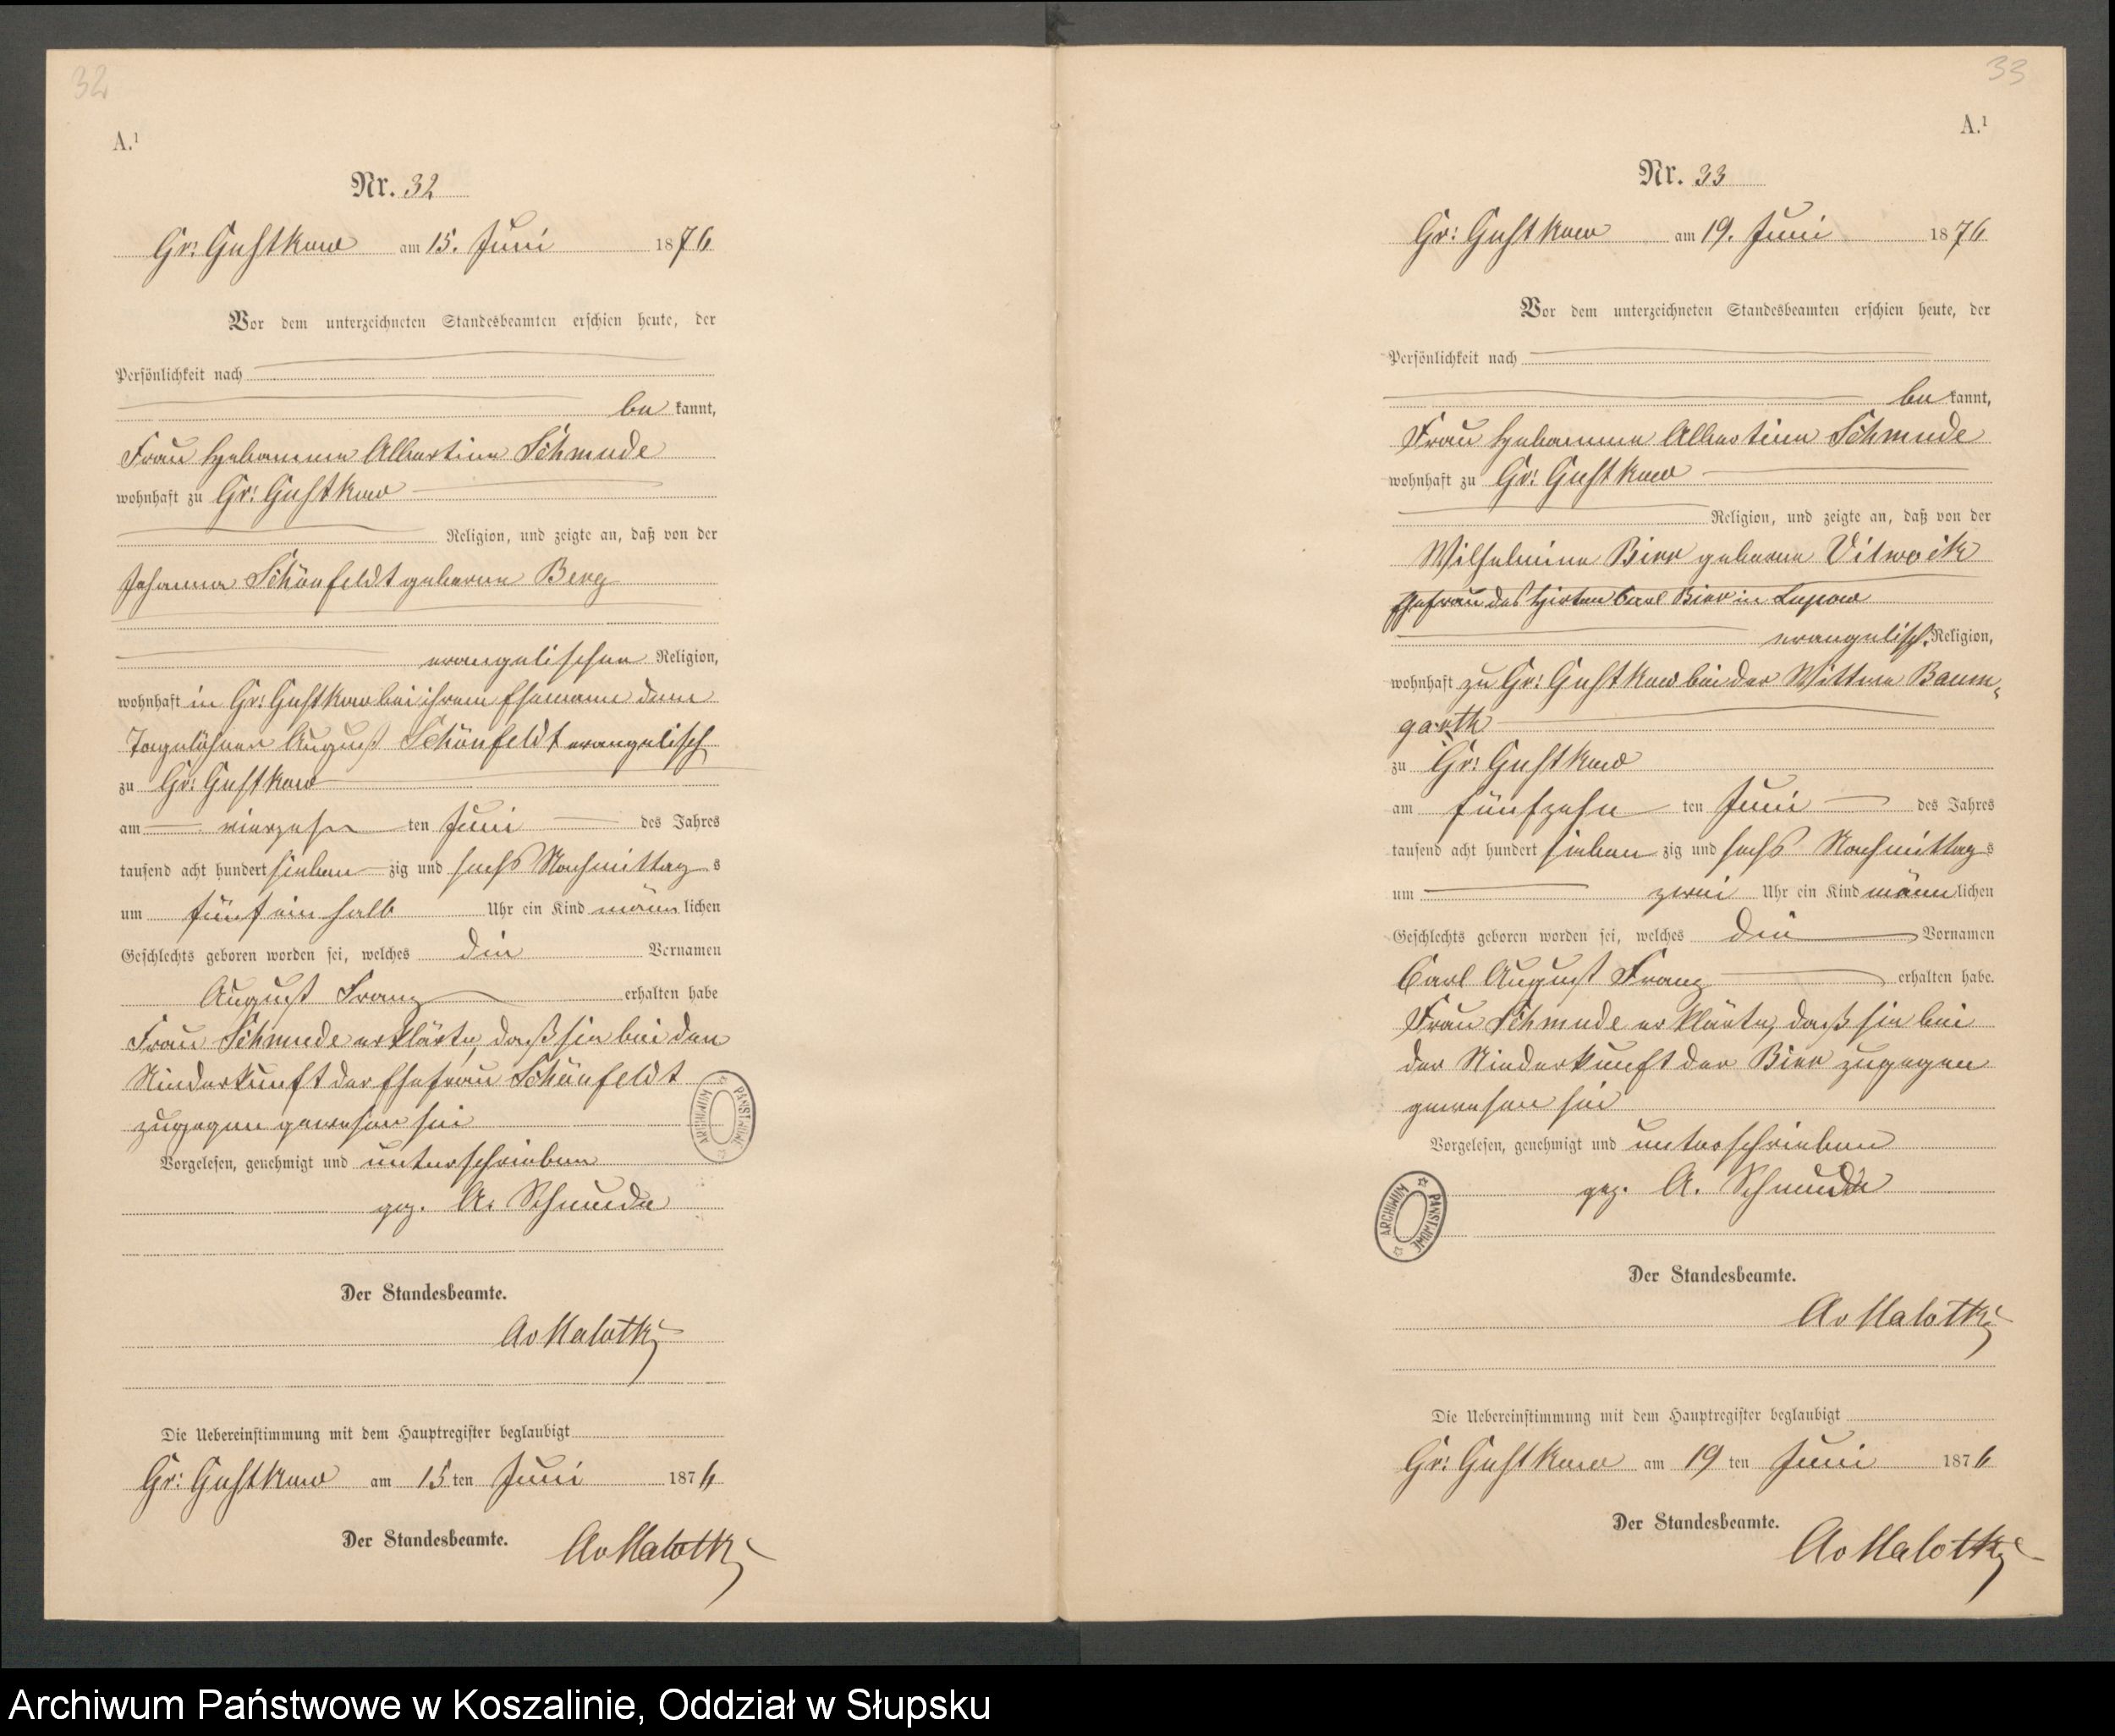 32
A.¹
Nr. 32
Gr: Gustkow am 15. Juni 1876
Vor dem unterzeichneten Standesbeamten erschien heute, der
Persönlichkeit nach
be kannt,
Frau Hebamme Albertine Schmude
wohnhaft zu Gr: Gustkow
Religion, und zeigte an, daß von der
Johanna Schönfeldt geborene Berg
evangelischen Religion,
wohnhaft in Gr: Gustkow bei ihrem Ehemann dem
Tagelöhner August Schönfeldt evangelisch
zu Gr: Gustkow
am vierzehn ten Juni des Jahres
tausend acht hundert sieben zig und sechs Nachmittag s
um fünf ein halb Uhr ein Kind männ lichen
Geschlechts geboren worden sei, welches die Vornamen
August Franz erhalten habe
Frau Schmude erklärte, daß sie bei den
Niederkunft der Ehefrau Schönfeldt
zugegen gewesen sei
Vorgelesen, genehmigt und unterschrieben
gez. A. Schmude
Der Standesbeamte.
AvMalotky
Die Uebereinstimmung mit dem Hauptregister beglaubigt
Gr: Gustkow am 15 ten Juni 1876
Der Standesbeamte. AvMalotky
ARCHIWUM PAŃSTWOWE
33
A.¹
Nr. 33
Gr: Gustkow am 19. Juni 1876
Vor dem unterzeichneten Standesbeamten erschien heute, der
Persönlichkeit nach
be kannt,
Frau Hebamme Albertine Schmude
wohnhaft zu Gr: Gustkow
Religion, und zeigte an, daß von der
Wilhelmine Bier geborene Vilwock
Ehefrau des Hirten Carl Bier in Lupow
evangelisch. Religion,
wohnhaft zu Gr: Gustkow bei der Wittwe Baum-
garth
zu Gr: Gustkow
am fünfzehn ten Juni des Jahres
tausend acht hundert sieben zig und sechs Nachmittag s
um zwei Uhr ein Kind männ lichen
Geschlechts geboren worden sei, welches die Vornamen
Carl August Franz erhalten habe.
Frau Schmude erklärte, daß sie bei
der Niederkunft der Bier zugegen
gewesen sei
Vorgelesen, genehmigt und unterschrieben
gez. A. Schmude
ARCHIWUM PAŃSTWOWE
Der Standesbeamte.
AvMalotky
Die Uebereinstimmung mit dem Hauptregister beglaubigt
Gr: Gustkow am 19 ten Juni 1876
Der Standesbeamte. AvMalotky
Archiwum Państwowe w Koszalinie, Oddział w Słupsku